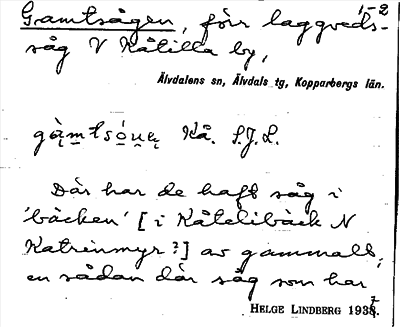 1-2
Gamtsågen, förr laggveds-
såg V Kåtilla by,
Älvdalens sn, Älvdals tg, Kopparbergs län.
Kå. S.J.L.
Där har de haft såg i
'bäcken' [i Kåtelibäck N
Katrinmyr?] av gammalt,
en sådan där såg som har
HELGE LINDBERG 1937.